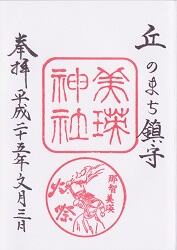 丘のまち鎮守
美瑛神社
那智美瑛
火祭
奉拝 平成二十五年文月三日